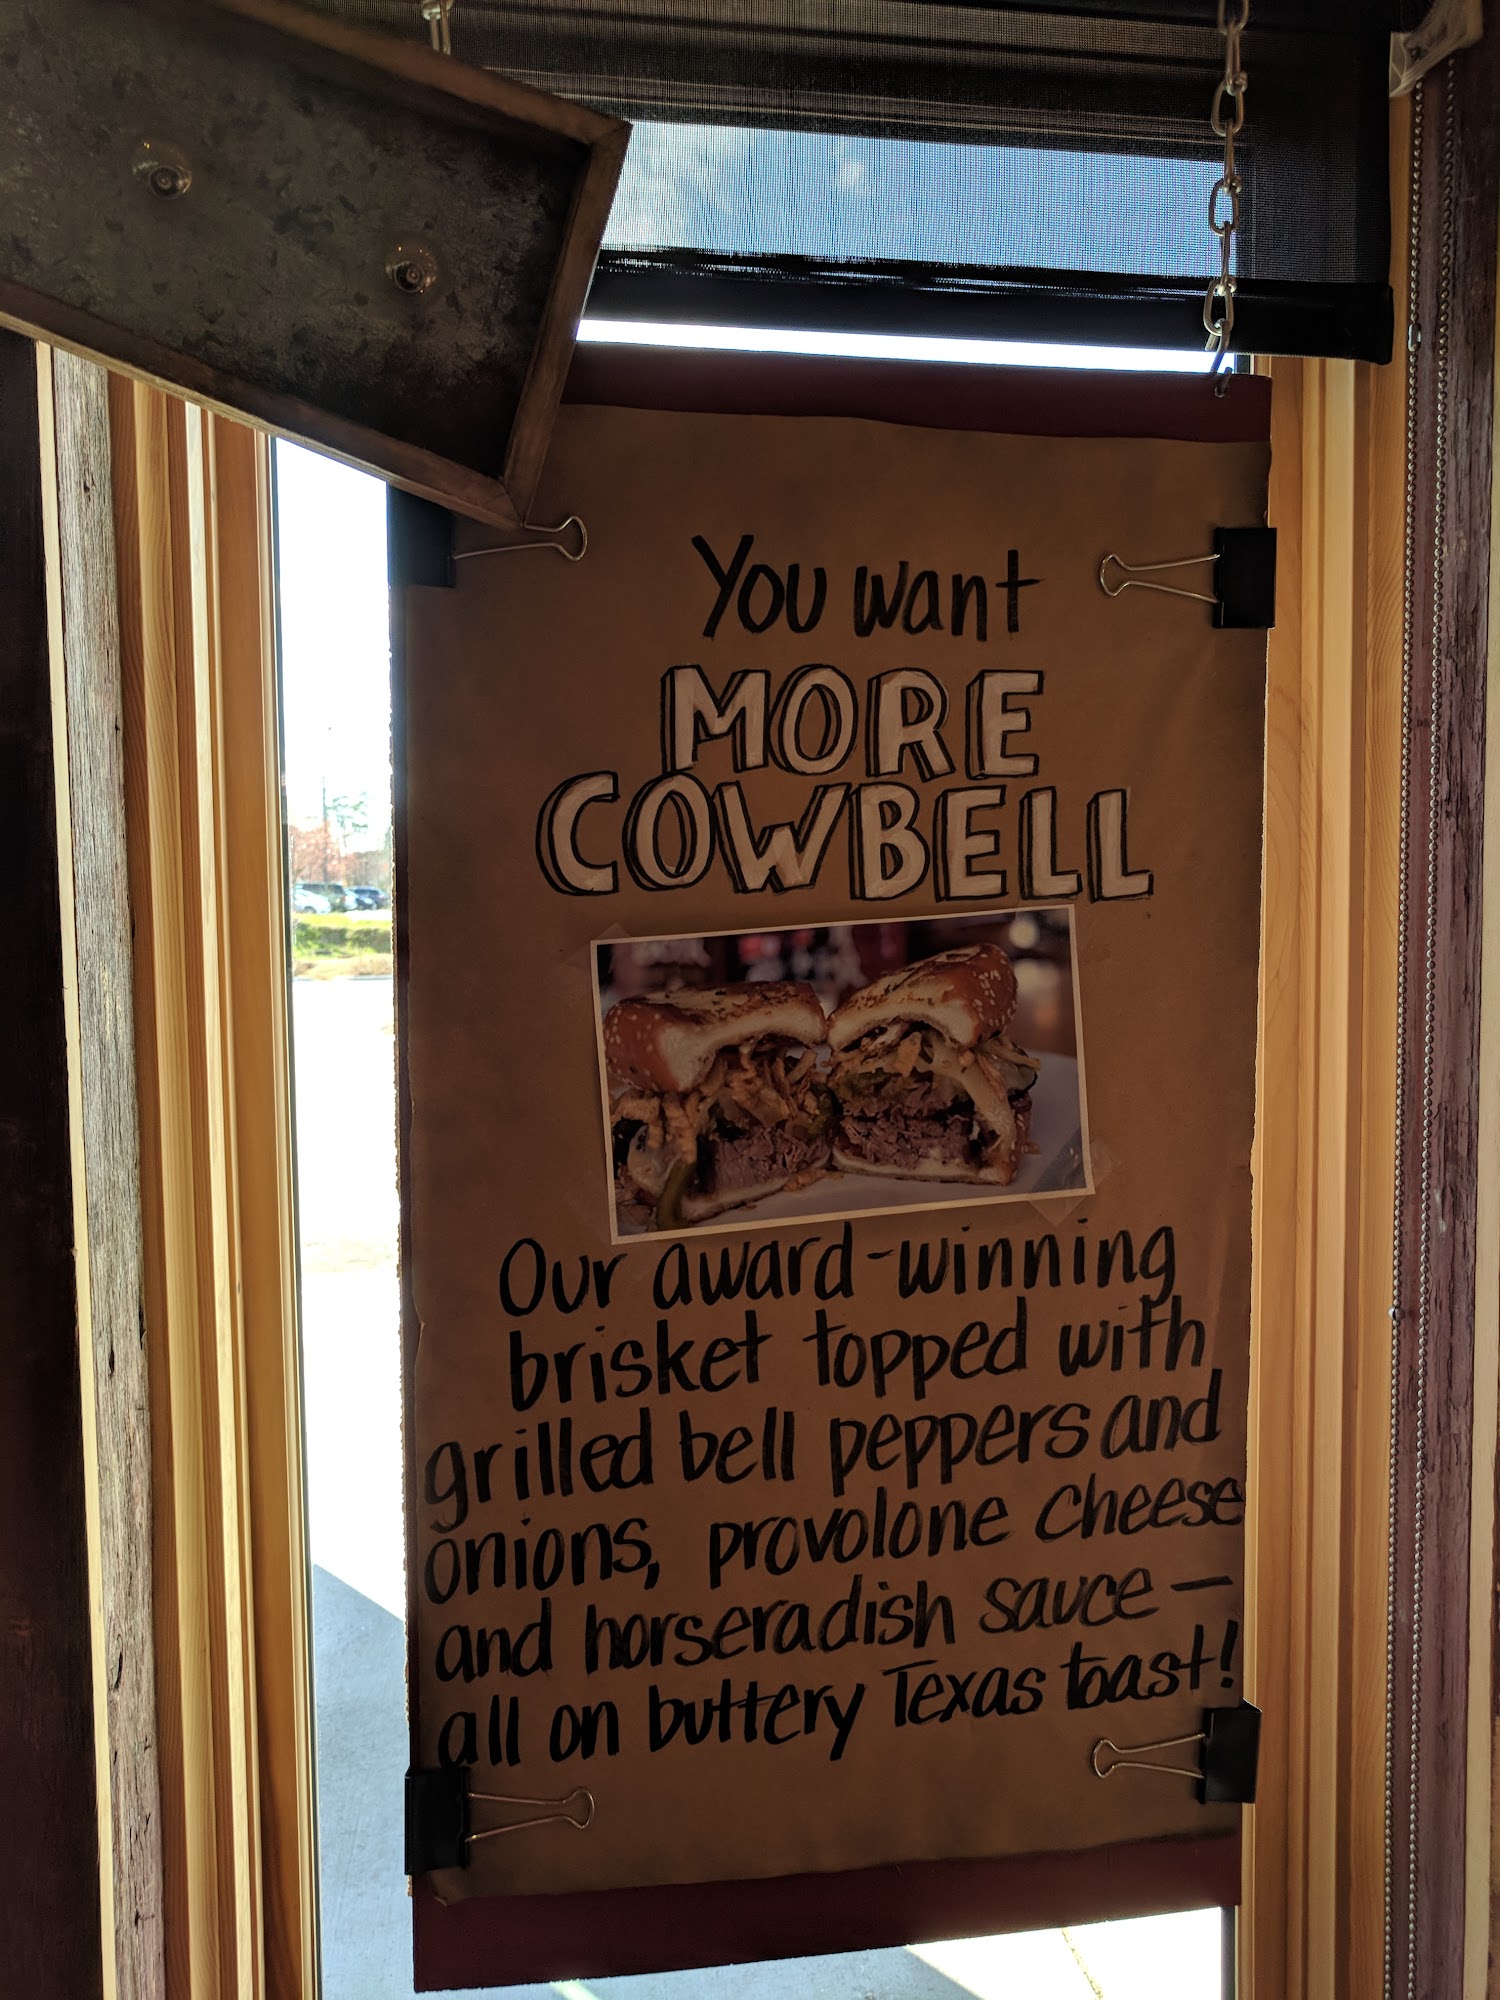 You want
MORE
COWBELL
Our award-winning
brisket topped with
grilled bell peppers and
onions, provolone cheese
and horseradish sauce —
all on buttery Texas toast!